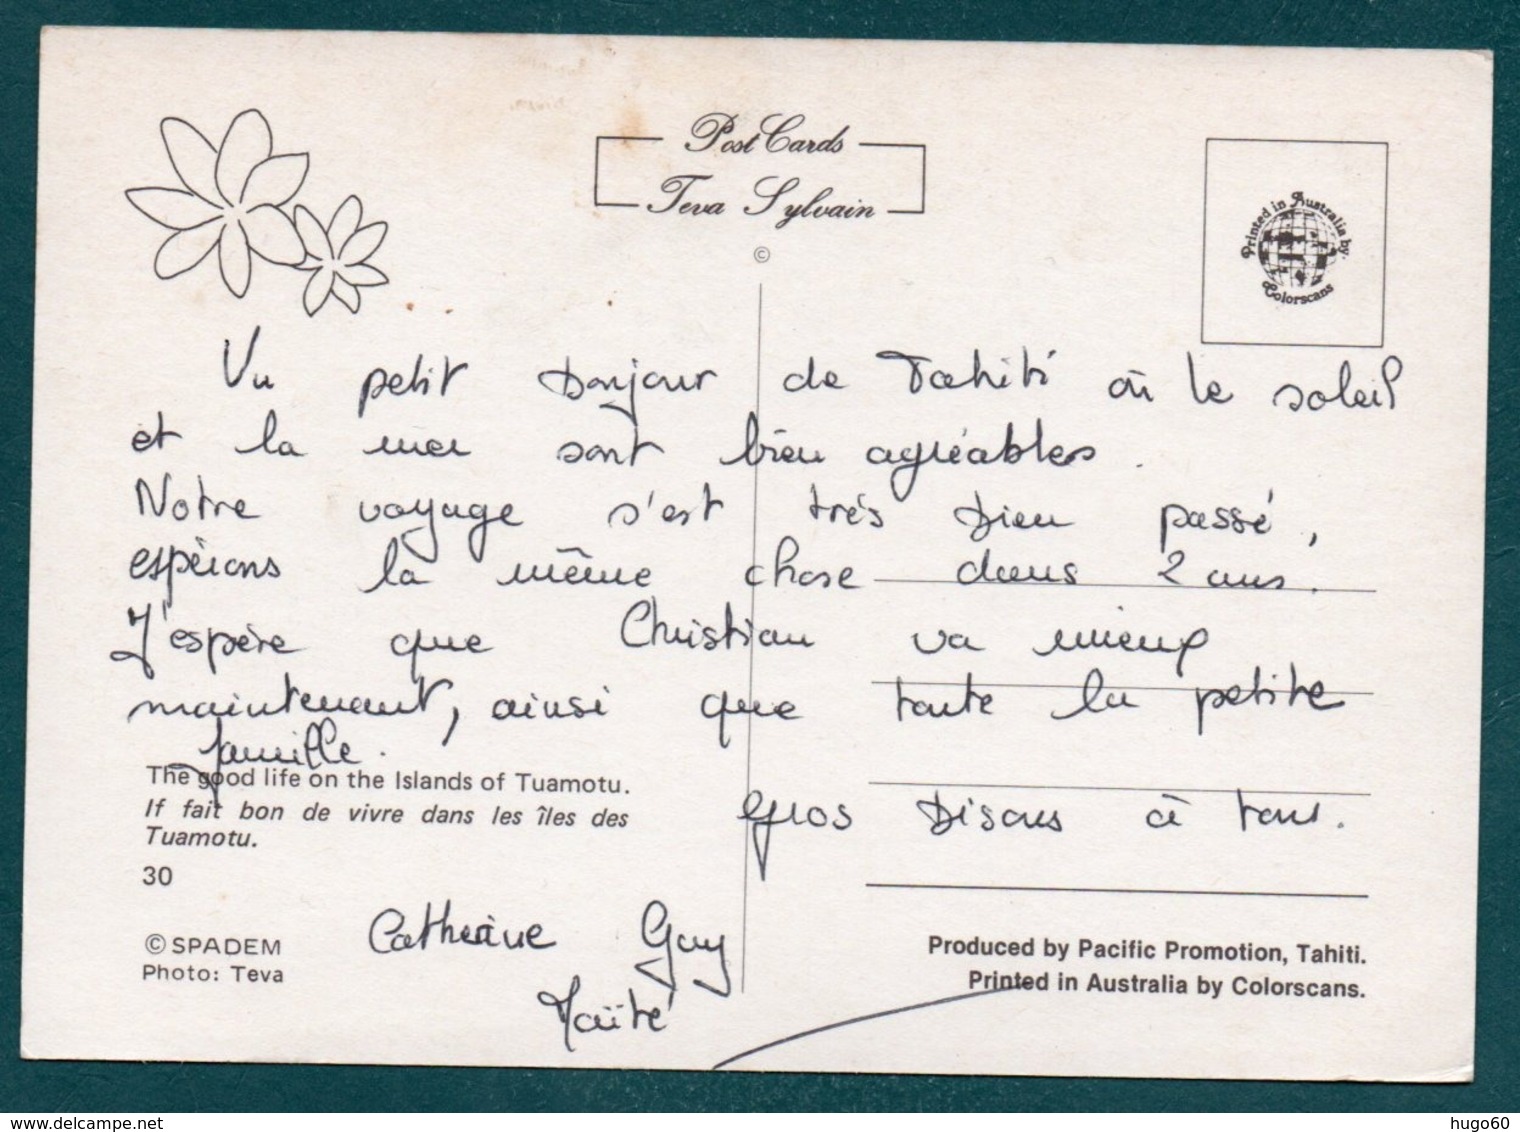 Post Cards
Teva Sylvain
©
Printed in Australia by:
Colorscans
Un petit bonjour de Tahiti où le soleil
et la mer sont bien agréables.
Notre voyage s'est très bien passé,
espérons la même chose dans 2 ans.
J'espère que Christian va mieux
maintenant, ainsi que toute la petite
famille.
Gros bisous à tous.
The good life on the Islands of Tuamotu.
If fait bon de vivre dans les îles des
Tuamotu.
30
© SPADEM
Photo: Teva
Catherine Guy
Maïté
Produced by Pacific Promotion, Tahiti.
Printed in Australia by Colorscans.
hugo60